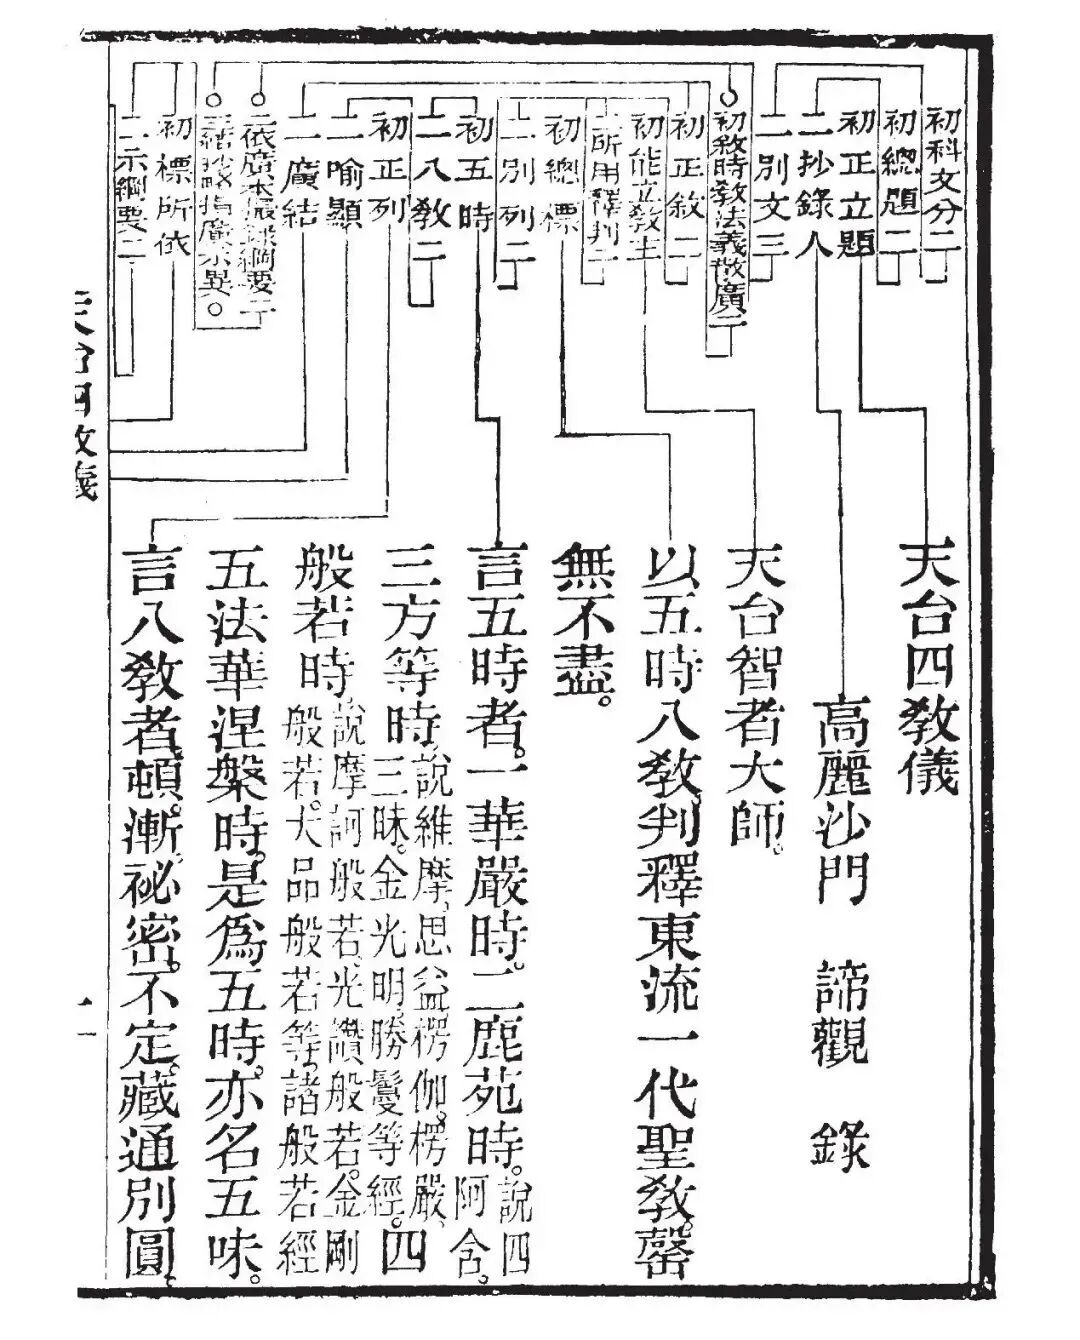 初科文分二
初總題二
初正立題
二抄錄人
二別文三
初敘時教法義散廣二
初正敘二
初能立教主
二所用釋判二
初總標
二別列二
初五時
二八教二
初正列
二喻顯
二廣結
二依廣本撮錄綱要二
三結抄略指廣示異
初標所依
二示綱要二
天台四教儀
高麗沙門　諦觀　錄
天台智者大師。
以五時八教。判釋東流一代聖教。罄
無不盡。
言五時者。一華嚴時。二鹿苑時。說四阿含。
三方等時。說維摩。思益。楞伽。楞嚴。三昧。金光明。勝鬘等經。四
般若時。說摩訶般若。光讚般若。金剛般若。大品般若等。諸般若經
五法華涅槃時。是為五時。亦名五味。
言八教者。頓。漸。祕密。不定。藏通別圓。
天台四教儀
一